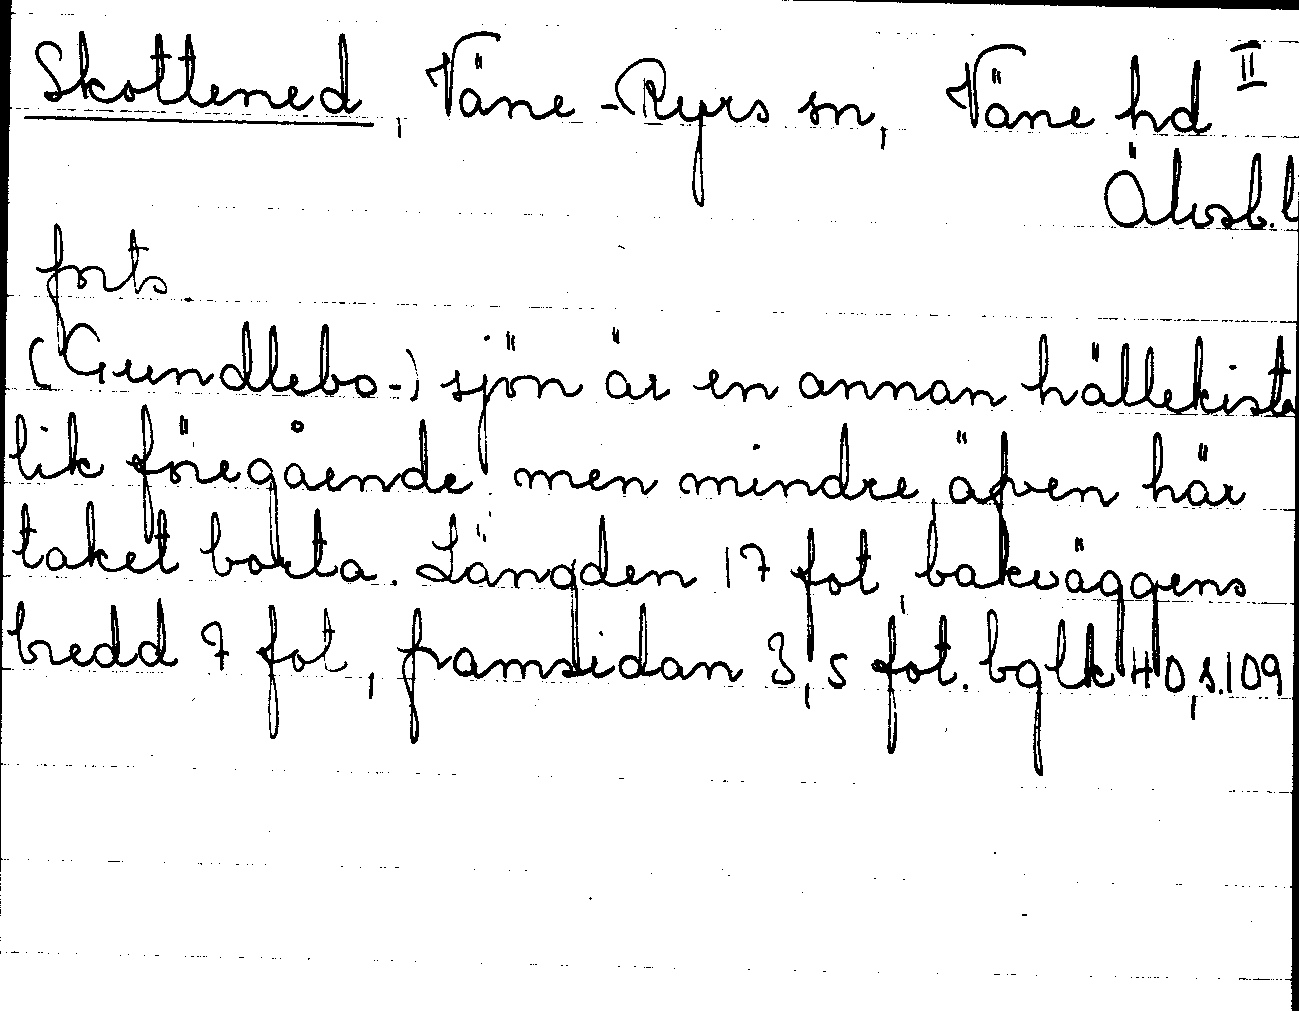 Skottened, Väne-Ryrs sn, Väne hd II
Älvsb.l
forts.
(Gundlebo-) sjön är en annan hällekista
lik föregående men mindre, äfven här
taket borta. Längden 17 fot, bakväggens
bredd 7 fot, framsidan 3,5 fot. bglk 40, s.109